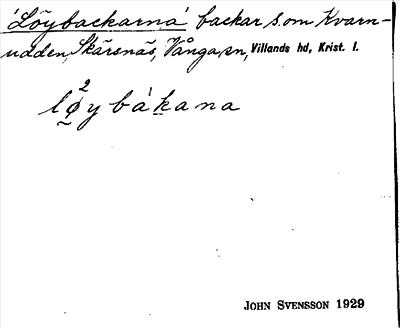 'Löybackarna' backar som Kvarn-
udden, Skärsnäs, Vånga sn, Villands hd, Krist. l.
lø²y bà k a n a
JOHN SVENSSON 1929